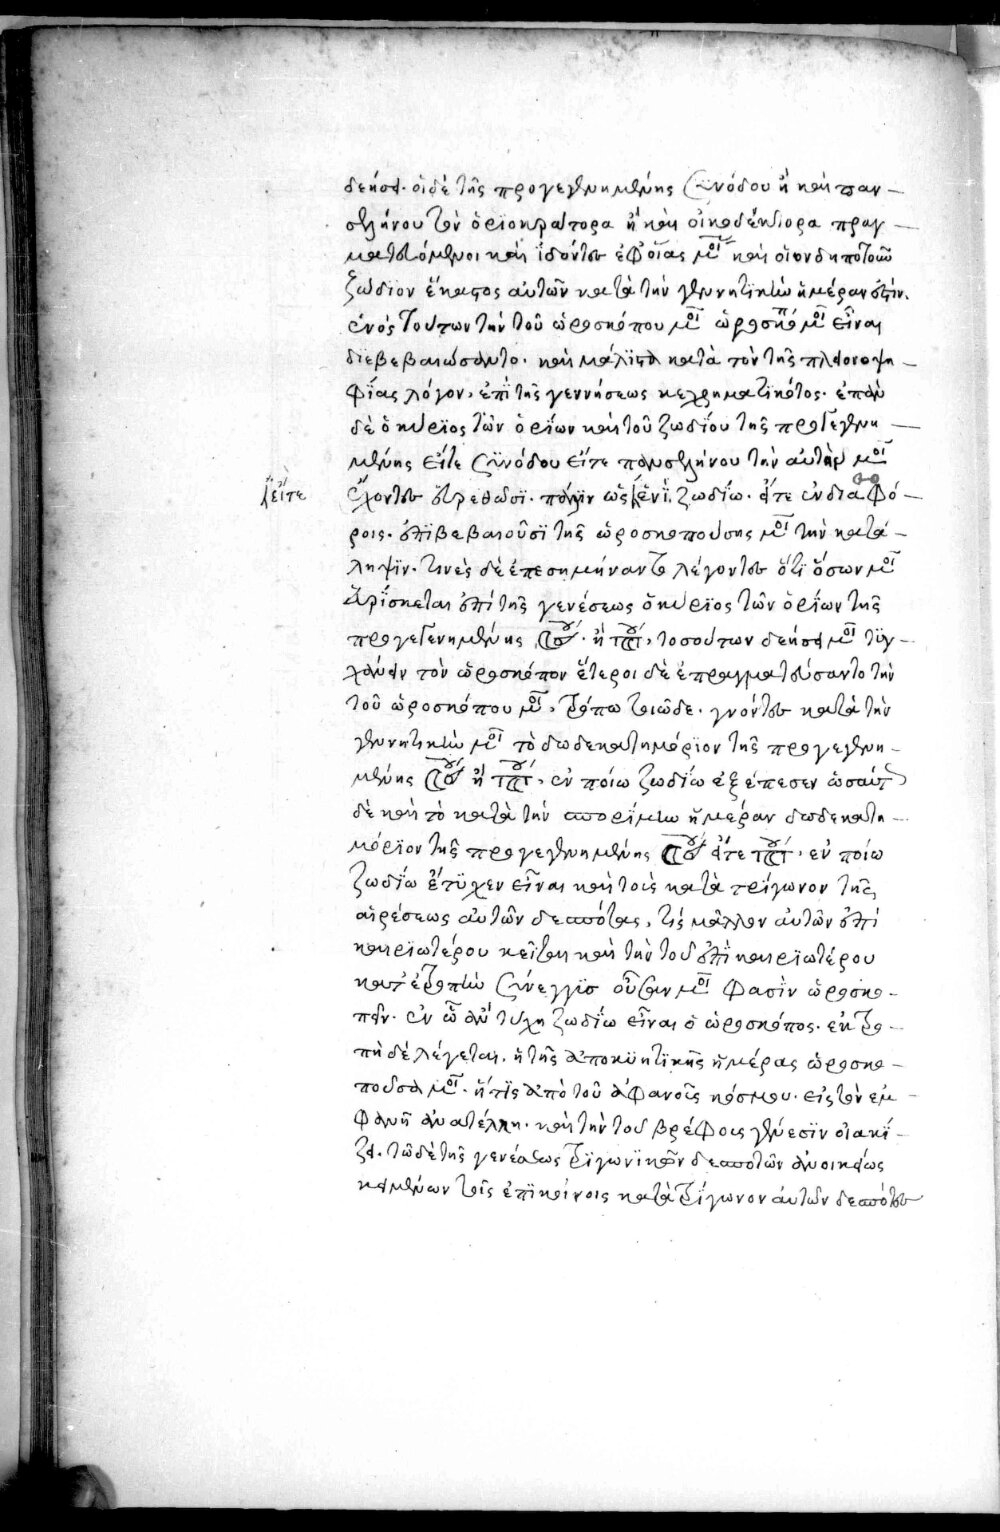 δεήσει. οἱ δὲ τῆς προγεγενημένης συνόδου ἢ καὶ παν—
σελήνου τὸν ὁριοκράτορα ἢ καὶ οἰκοδέκτορα πραγ—
ματευόμενοι καὶ ἰδόντες ἐφ' οἵας μοι καὶ οἱονδηποτοῦν
ζώδιον ἕκαστος αὐτῶν κατὰ τὴν γενητικὴν ἡμέραν ἐστίν.
ἑνὸς τούτων τὴν τοῦ ὡροσκόπου μοι ὡροσκόπ μοι εἶναι
διεβεβαιώσαντο. καὶ μάλιστα κατὰ τὸν τῆς πλειονοψη—
φίας λόγον, ἐπὶ τῆς γεννήσεως κεχρηματικότος. ἐπὰν
δὲ ὁ κύριος τῶν ὁρίων καὶ τοῦ ζωδίου τῆς προγεγενη—
μένης εἴτε συνόδου εἴτε πανσελήνου τὴν αὐτὴν μοι
ἔχοντες εὑρεθῶσι. πάλιν ὡς ἑνὶ ζωδίω. εἴτε ἐν διαφό—
εἴτε
ροις. ἐπιβεβαιοῦσι τῆς ὡροσκοπούσης μοι τὴν κατά—
ληψιν. τινὲς δὲ ἐπεσημήναντο λέγοντες ὅτι ὅσων μοι
εὑρίσκεται ἐπὶ τῆς γενέσεως ὁ κύριος τῶν ὁρίων τῆς
προγεγενημένης ἢ τοσούτων δεήσει μοι τυγ—
χάνειν τὸν ὡροσκόπον ἕτεροι δὲ ἐπραγματεύσαντο τὴν
τοῦ ὡροσκόπου μοι, τρόπω τοιῶδε. γνόντες κατὰ τὴν
γενητικὴν μοι τὸ δωδεκατημόριον τῆς προγεγενη—
μένης ἢ ἐν ποίω ζωδίω ἐξέπεσεν ὡσαύτ
δὲ καὶ τὸ κατὰ τὴν σπορίμην ἡμέραν δωδεκατη—
μόριον τῆς προγεγενημένης εἴτε ἐν ποίω
ζωδίω ἔτυχεν εἶναι καὶ τοὺς κατὰ τρίγωνον τῆς
αἱρέσεως αὐτῶν δεσπότας, τίς μᾶλλον αὐτῶν ἐπὶ
καιριωτέρου κεῖται καὶ τὴν τοῦ ἐπὶ καιριωτέρου
κατ' ἐκτροπὴν σύνεγγισ οὖσαν μοι φασὶν ὡροσκο—
πεῖν. ἐν ὧ ἂν τύχη ζωδίω εἶναι ὁ ὡροσκόπος. ἐκτρο—
πὴ δὲ λέγεται, ἡ τῆς ἀποκυητικῆς ἡμέρας ὡροσκο—
ποῦσα μοι. ἥτις ἀπὸ τοῦ ἀφανοῦς κόσμου. εἰς τὸν ἐμ—
φανῆ ἀνατέλλη. καὶ τὴν τοῦ βρέφους γένεσιν οἰακί—
ζει. τῶν δὲ τῆς γενέσεως τριγωνικῶν δεσποτῶν ἀνοικείως
κειμένων τοῖς ἐπικοίνοις κατὰ τρίγωνον αὐτῶν δεσπότες